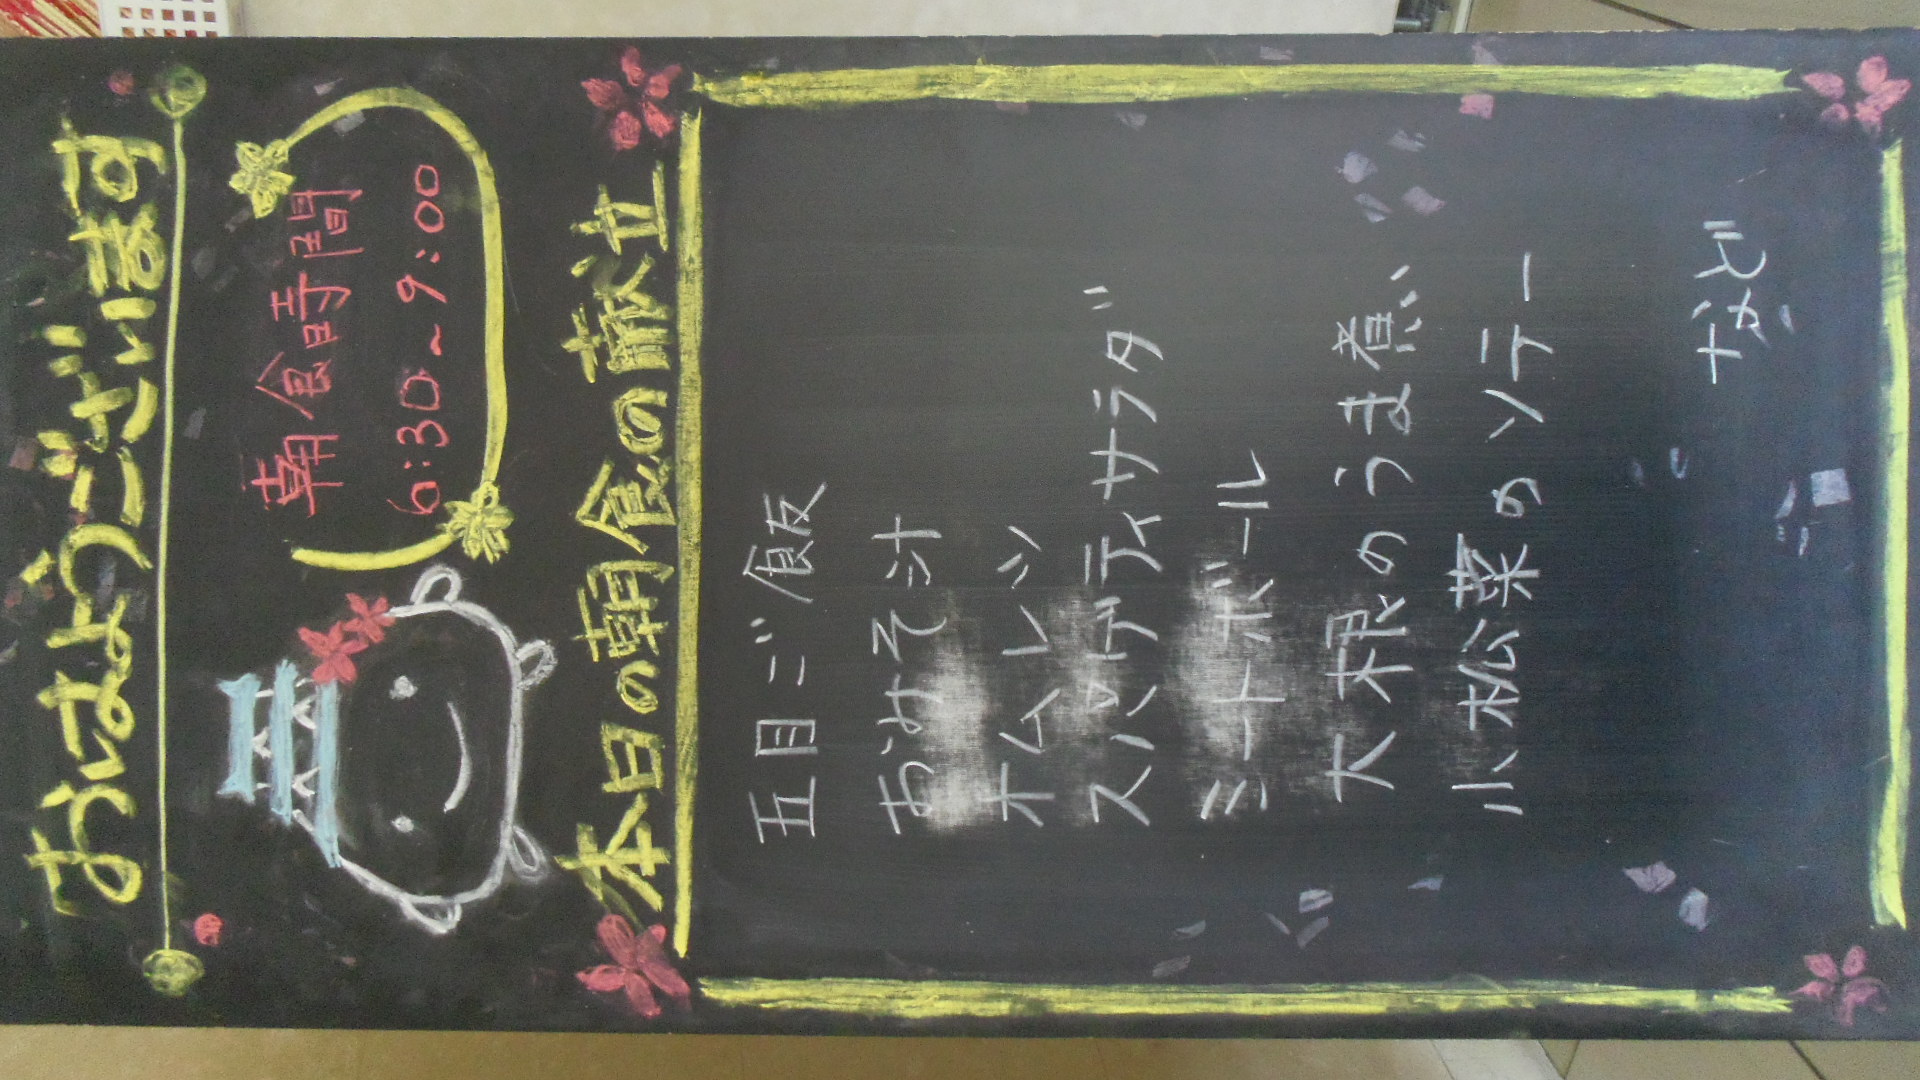 おはようございます
朝食時間
6:30~9:00
本日の朝食の献立
五目ご飯
おみそ汁
オムレツ
スパゲティサラダ
ミートボール
大根のうま煮
小松菜のソテー
など